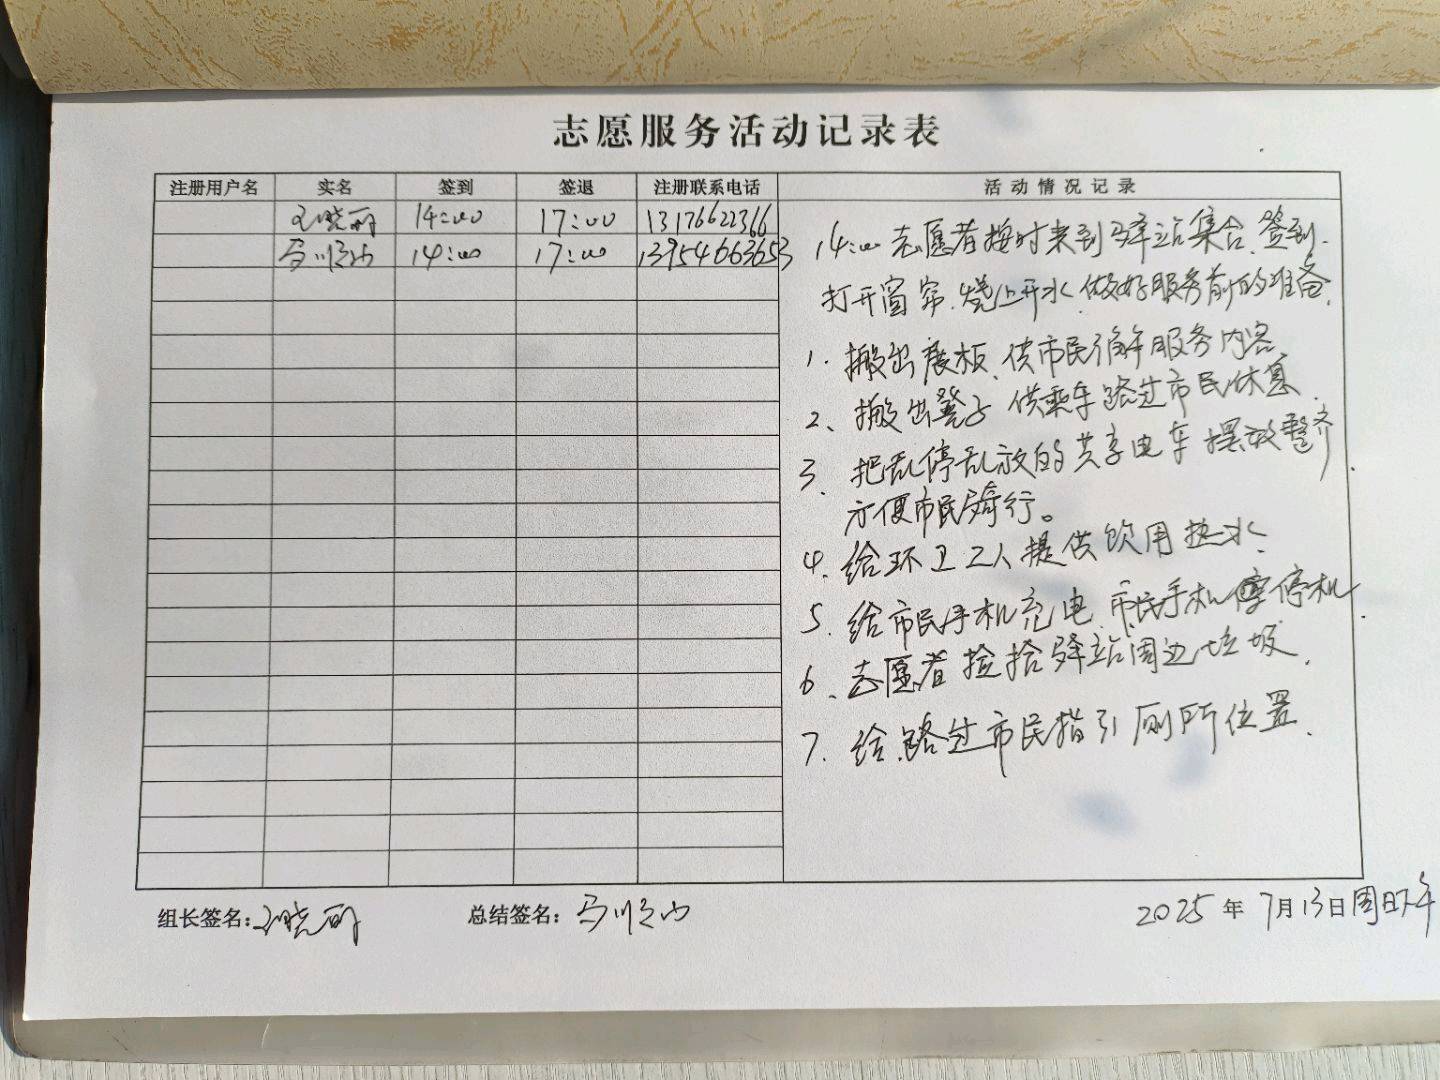 志愿服务活动记录表
注册用户名 实名 签到 签退 注册联系电话 活动情况记录
王晓丽 14:00 17:00 13176622366
马顺山 14:00 17:00 13954663653
14:00志愿者按时来到驿站集合、签到.
打开窗帘.烧上开水.做好服务前的准备.
1. 搬出展板、供市民了解服务内容
2、搬出凳子 供乘车路过市民休息.
3. 把乱停乱放的共享电车摆放整齐.
方便市民骑行。
4. 给环卫工人提供饮用热水.
5. 给市民手机充电.市民手机停机.
6、志愿者捡拾驿站周边垃圾.
7. 给路过市民指引厕所位置.
组长签名:王晓丽 总结签名:马顺山 2025年7月13日周日下午